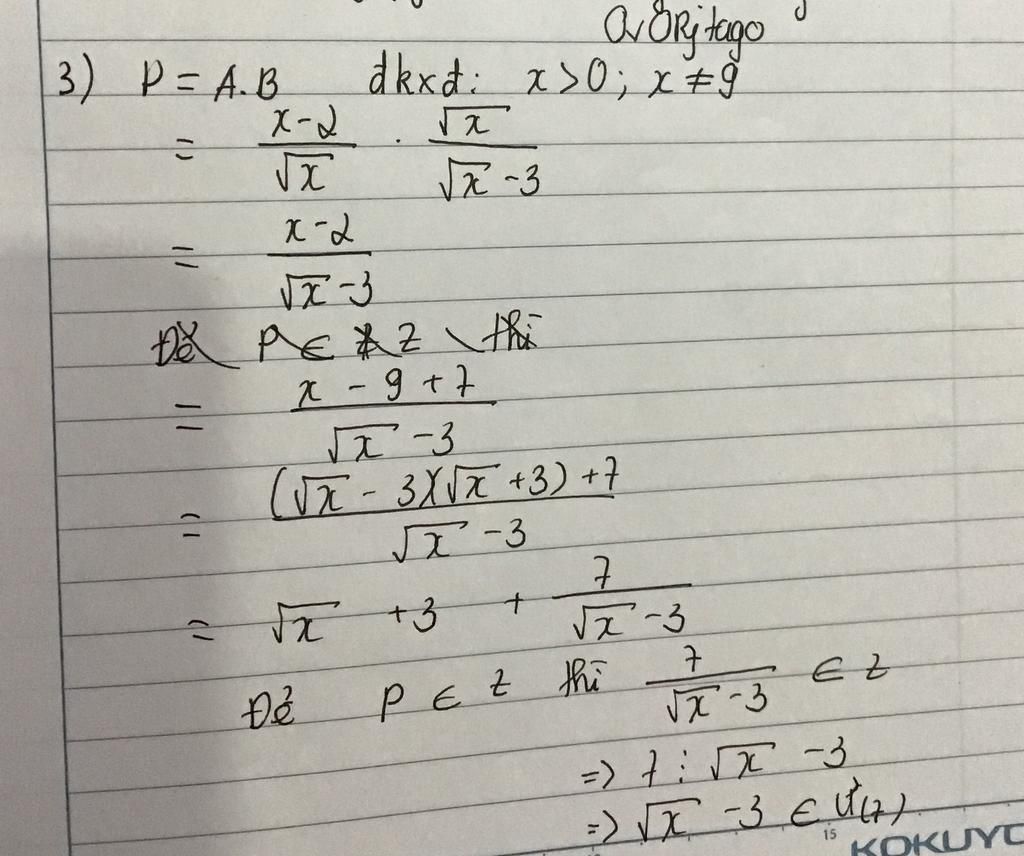 Ơritago
3) P = A.B đkxđ: x > 0; x ≠ 9
= \frac{x-2}{\sqrt{x}} . \frac{\sqrt{x}}{\sqrt{x}-3}
= \frac{x-2}{\sqrt{x}-3}
Để P ∈ Z thì
= \frac{x-9+7}{\sqrt{x}-3}
= \frac{(\sqrt{x}-3)(\sqrt{x}+3)+7}{\sqrt{x}-3}
= \sqrt{x} + 3 + \frac{7}{\sqrt{x}-3}
Để P ∈ Z thì \frac{7}{\sqrt{x}-3} ∈ Z
=> 7 ⋮ \sqrt{x} - 3
=> \sqrt{x} - 3 ∈ Ư(7)
15 KOKUYO